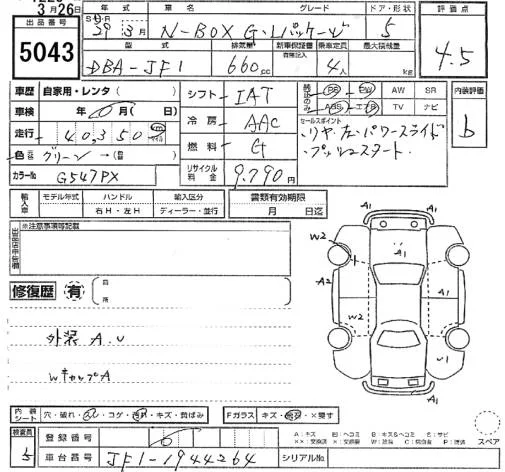 3月26日
出品番号
5043
年式
車名
グレード
ドア・形状
評価点
3月
N-BOX G・Lパッケージ
5
4.5
型式
排気量
新車保証書
有無記入
乗車定員
最大積載量
DBA-JF1
660cc
4人
kg
車歴
自家用・レンタ( )
車検
年 月( 日)
走行
40,350
色
グリーン
カラーNo
G547PX
シフト
IAT
冷房
AAC
燃料
G
リサイクル料金
9,790円
PS
PW
AW
SR
ABS
エアB
TV
ナビ
内装評価
b
セールスポイント
・リヤ左パワースライド
・プッシュスタート.
輸入車
モデル年式
ハンドル
輸入区分
右H・左H
ディーラー・並行
書類有効期限
月 日迄
※注意事項等記載
修復歴
有
自
所
外装 A.U
WキャップA
A1
W2
A1
A1
A2
W2
U1
A1
内装シート
穴・破れ・
コゲ・
汚れ・キズ・黄ばみ
Fガラス
キズ・
・×要す
検査員
登録番号
車台番号
JF1-1944264
シリアルNo.
A:キズ
U:ヘコミ
B:キズ&ヘコミ
S:サビ
XX:交換済
X:交換要
W:波状
C:腐食
P:塗装
スペア